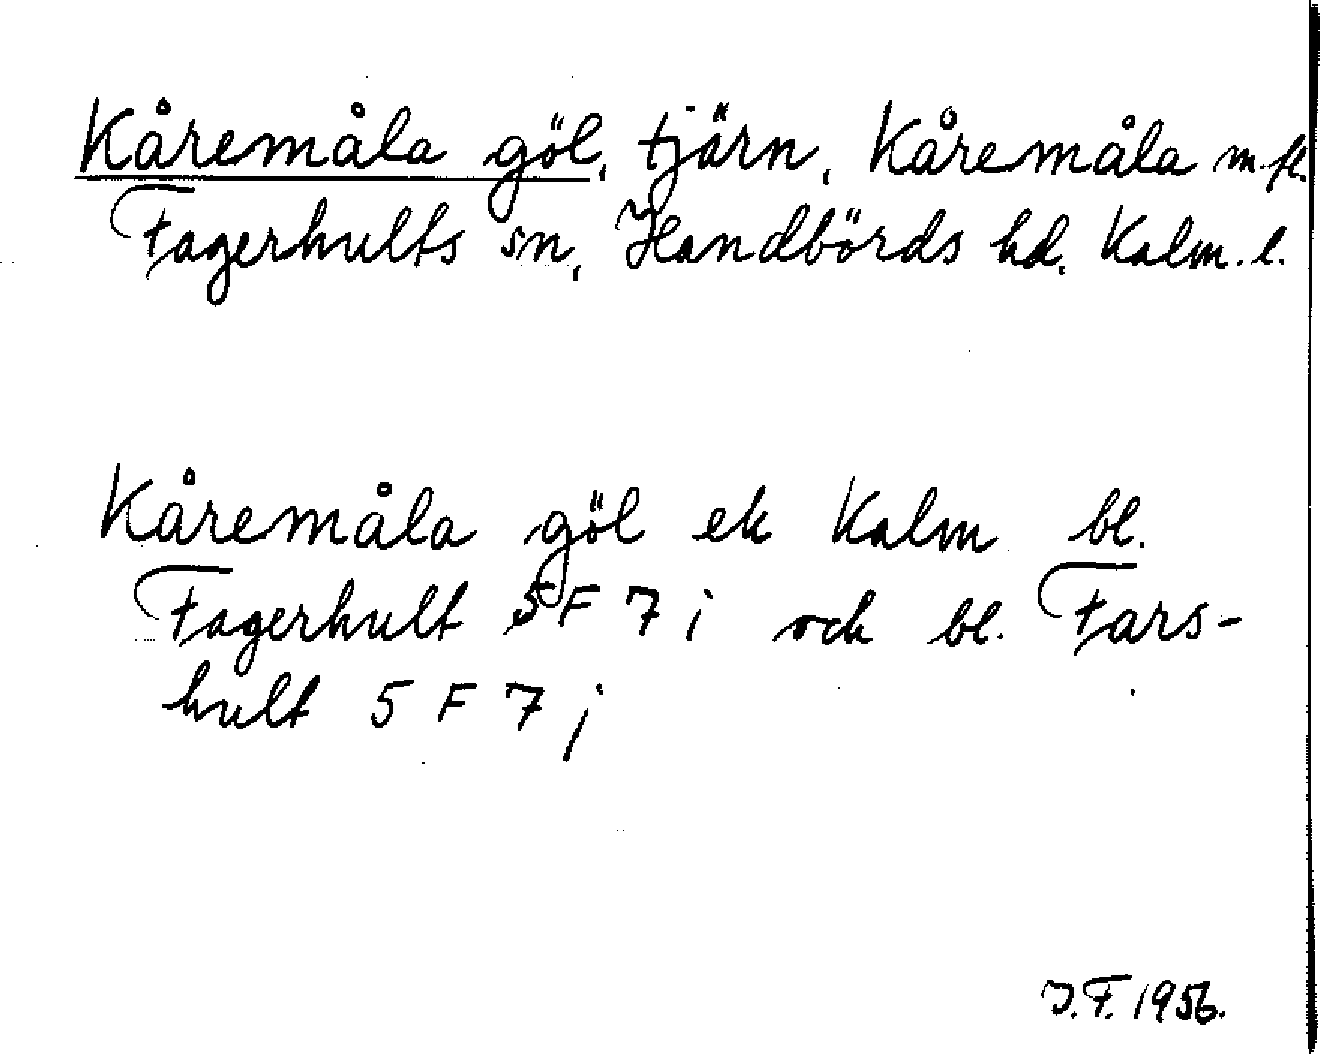 Kåremåla göl, tjärn, Kåremåla m.fl.
Fagerhults sn, Handbörds hd, Kalm. l.
Kåremåla göl ek Kalm bl.
Fagerhult 5 F 7 i och bl. Fars-
hult 5 F 7 j
J.F. 1956.